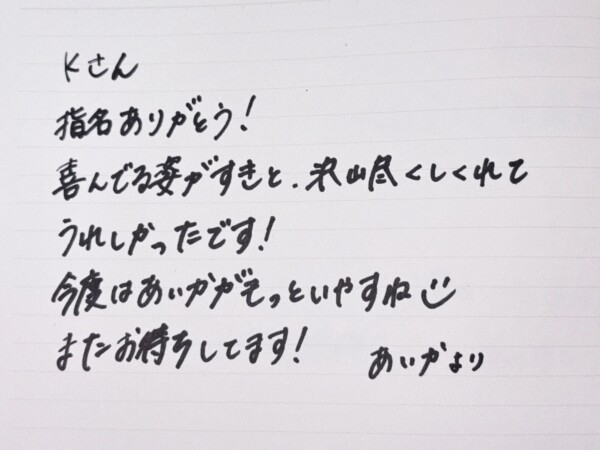 Kさん
指名ありがとう!
喜んでる姿がすきと、沢山尽くしくれて
うれしかったです!
今度はあいかがもっといやすね
またお待ちしてます!
あいかより